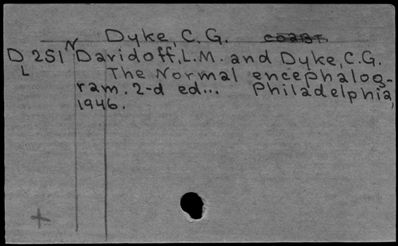 Dyke, C. G. соавт.
D 251 Davidoff, L.M. and Dyke, C.G.
L The Normal encephalog-
ram. 2-d ed... Philadelphia,
1946.